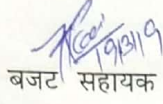 19/3/19
बजट सहायक